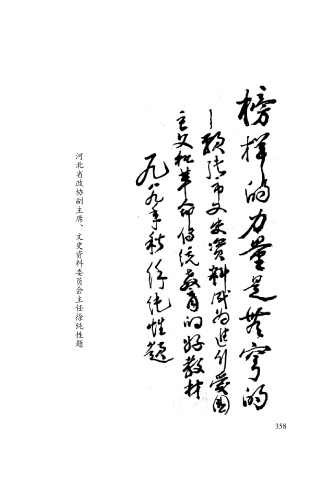 榜样的力量是无穷的
一颗张市文史资料成为进行爱国
主义和革命传统教育的好教材
九〇年秋 徐纯性题
河北省政协副主席、文史资料委员会主任徐纯性题
358